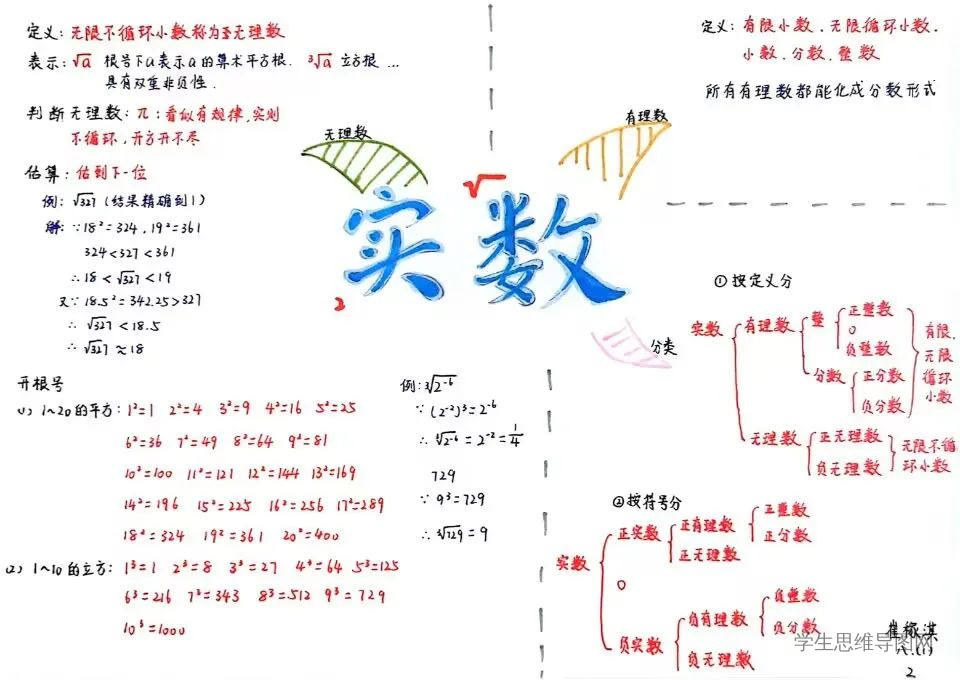 定义：无限不循环小数称为无理数
表示：√a 根号下a表示a的算术平方根. ³√a 立方根 …
具有双重非负性.
判断无理数：π：看似有规律,实则
不循环，开方开不尽
估算：估到下一位
例：√327 (结果精确到1)
解：∵18²=324, 19²=361
324<327<361
∴18<√327<19
又∵18.5²=342.25>327
∴√327<18.5
∴√327≈18
开根号
(1) 1~20的平方：1²=1 2²=4 3²=9 4²=16 5²=25
6²=36 7²=49 8²=64 9²=81
10²=100 11²=121 12²=144 13²=169
14²=196 15²=225 16²=256 17²=289
18²=324 19²=361 20²=400
(2) 1~10的立方：1³=1 2³=8 3³=27 4³=64 5³=125
6³=216 7³=343 8³=512 9³=729
10³=1000
例：³√2⁻⁶
∵(2⁻²)³=2⁻⁶
∴³√2⁻⁶=2⁻²=1/4
729
∵9³=729
∴³√729=9
无理数
有理数
√
实数
2
分类
定义：有限小数、无限循环小数、
小数、分数、整数
所有有理数都能化成分数形式
①按定义分
实数 有理数 整 正整数
0
负整数
分数 正分数
负分数
有限,
无限
循环
小数
无理数 正无理数
负无理数
无限不循
环小数
②按符号分
实数 正实数 正有理数 正整数
正分数
正无理数
0
负实数 负有理数 负整数
负分数
负无理数
八.(1)
2
学生思维导图网